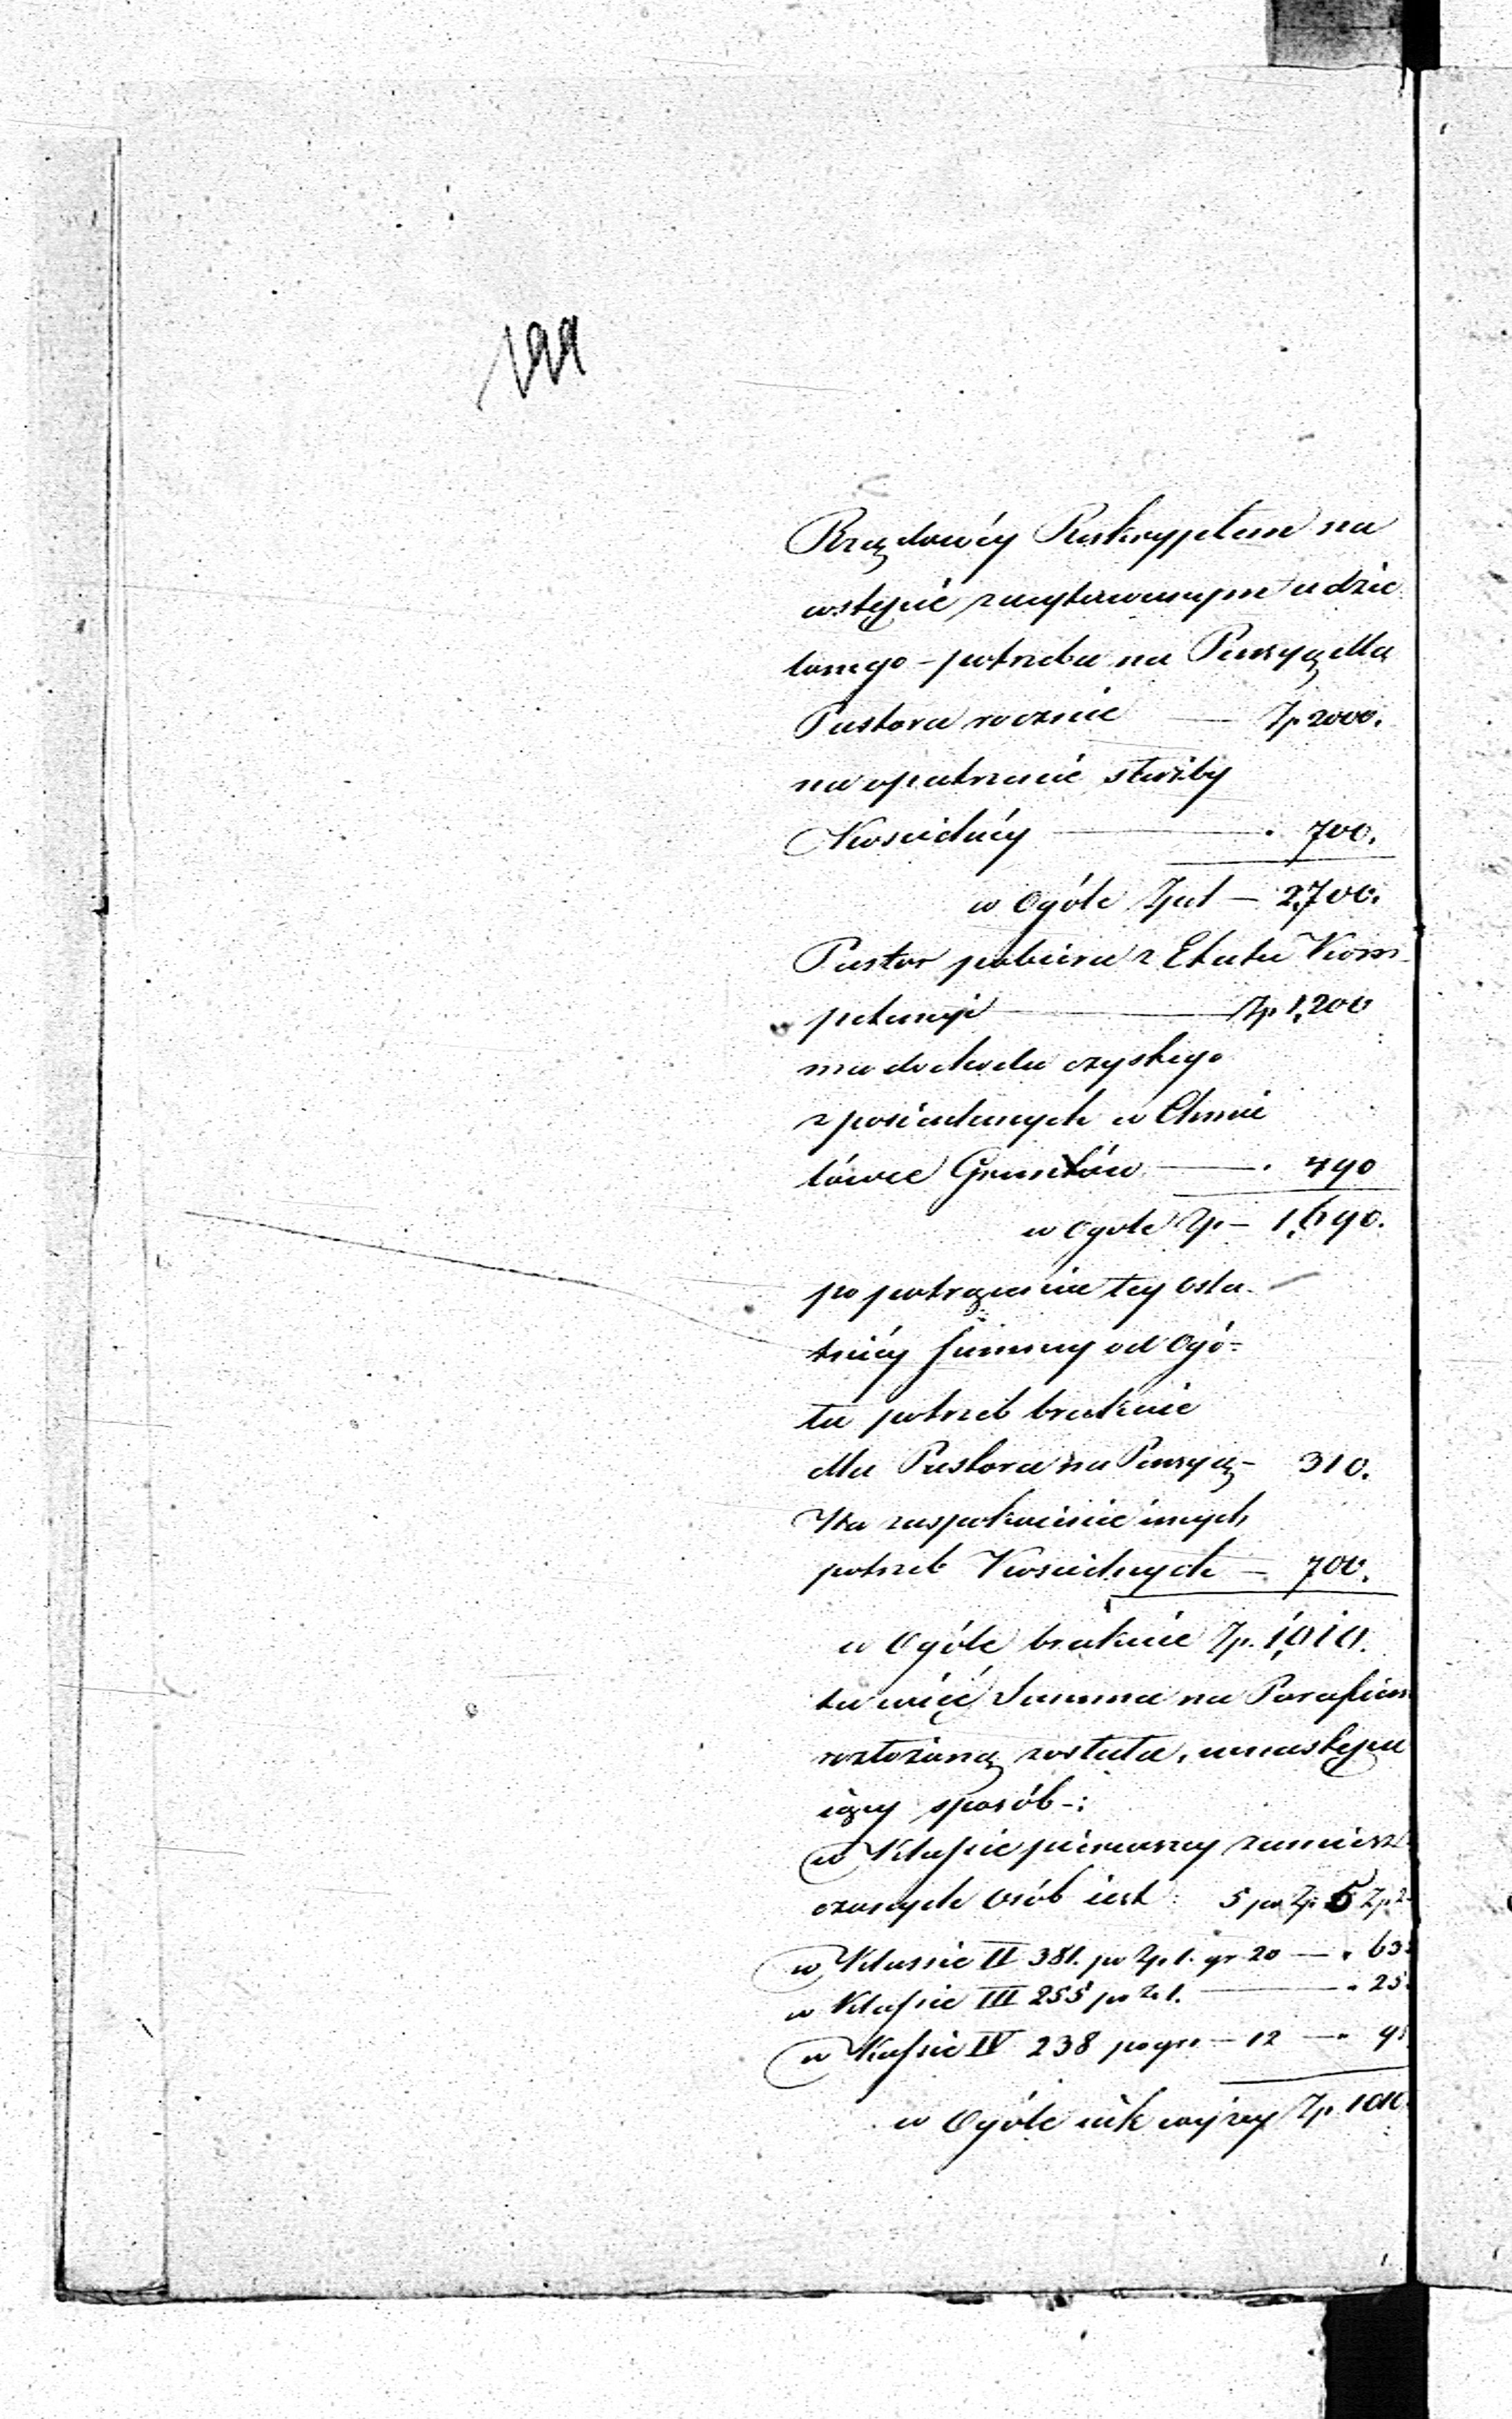 Rządowéy Reskryptem na
wstępie zacytowanym udzie
lonego – potrzeba na Pensyą dla
Pastora rocznie — Zp 2000.
na opatrzenie służby
Kościelnéy — . 700.
w Ogóle Złul — 2,700.
Pastor pobiera z Etatu Kom
petencyi — Zp 1,200
ma dochodu czystego
z posiadanych w Chmie
lówce Gruntów — . 490
w ogole Zp – 1,690.
po potrąceniu tey osta-
tniéy Summy od Ogó-
łu potrzeb braknie
dla Pastora na Pensyą – 310.
Na zaspokoienie innych
potrzeb Kościelnych – 700.
w Ogóle braknie Zp. 1,010.
ta więć Summa na Parafian
rozłożoną została, w nastepu
iący sposób –:
w Klassie pierwszey zamiesz
czonych osób iest : 5 po Zp 5 Zp 2
w Klassie II 381. po Zp 1. gr 20 — . 63
w Klassie III 255 po Zł 1. — . 25
w Klassie IV 238 po gr – 12 — . 9
w Ogóle iak wyżey Zp. 1010